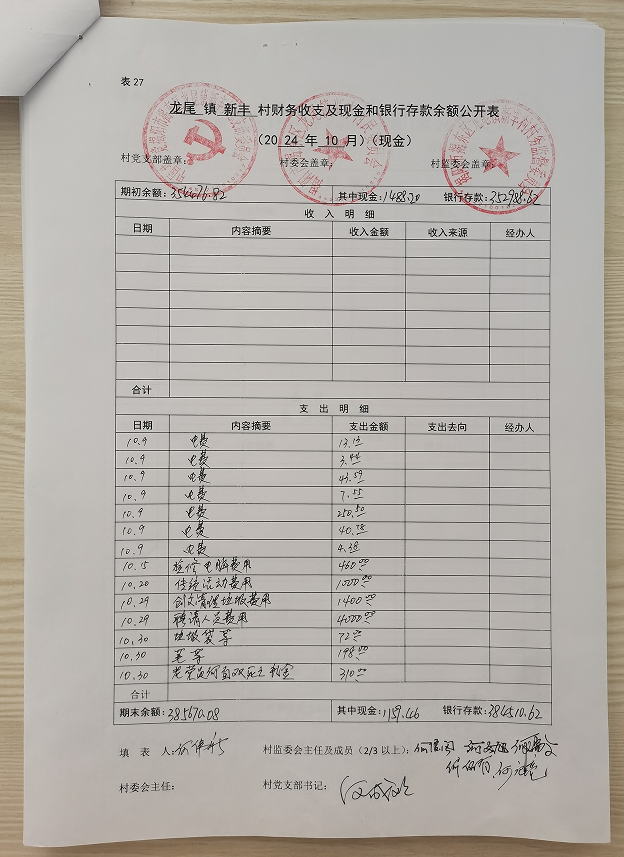 表 27
龙尾 镇 新丰 村财务收支及现金和银行存款余额公开表
（20 24 年 10 月）（现金）
村党支部盖章： 村委会盖章： 村监委会盖章：
期初余额： 其中现金：1488.20 银行存款：352988.62
收 入 明 细
日期 内容摘要 收入金额 收入来源 经办人
合计
支 出 明 细
日期 内容摘要 支出金额 支出去向 经办人
10.9 电费 13.13
10.9 电费 3.44
10.9 电费 43.59
10.9 电费 7.55
10.9 电费 250.50
10.9 电费 40.78
10.9 电费 4.38
10.15 维修电脑费用 460.00
10.20 传统活动费用 1000.00
10.29 创文清理垃圾费用 1400.00
10.29 聘请人员费用 4000.00
10.30 垃圾袋等 72.00
10.30 等 198.00
10.30 310.00
合计
期末余额：385670.08 其中现金：1159.46 银行存款：384510.62
填 表 人： 村监委会主任及成员（2/3 以上）：
村委会主任： 村党支部书记：